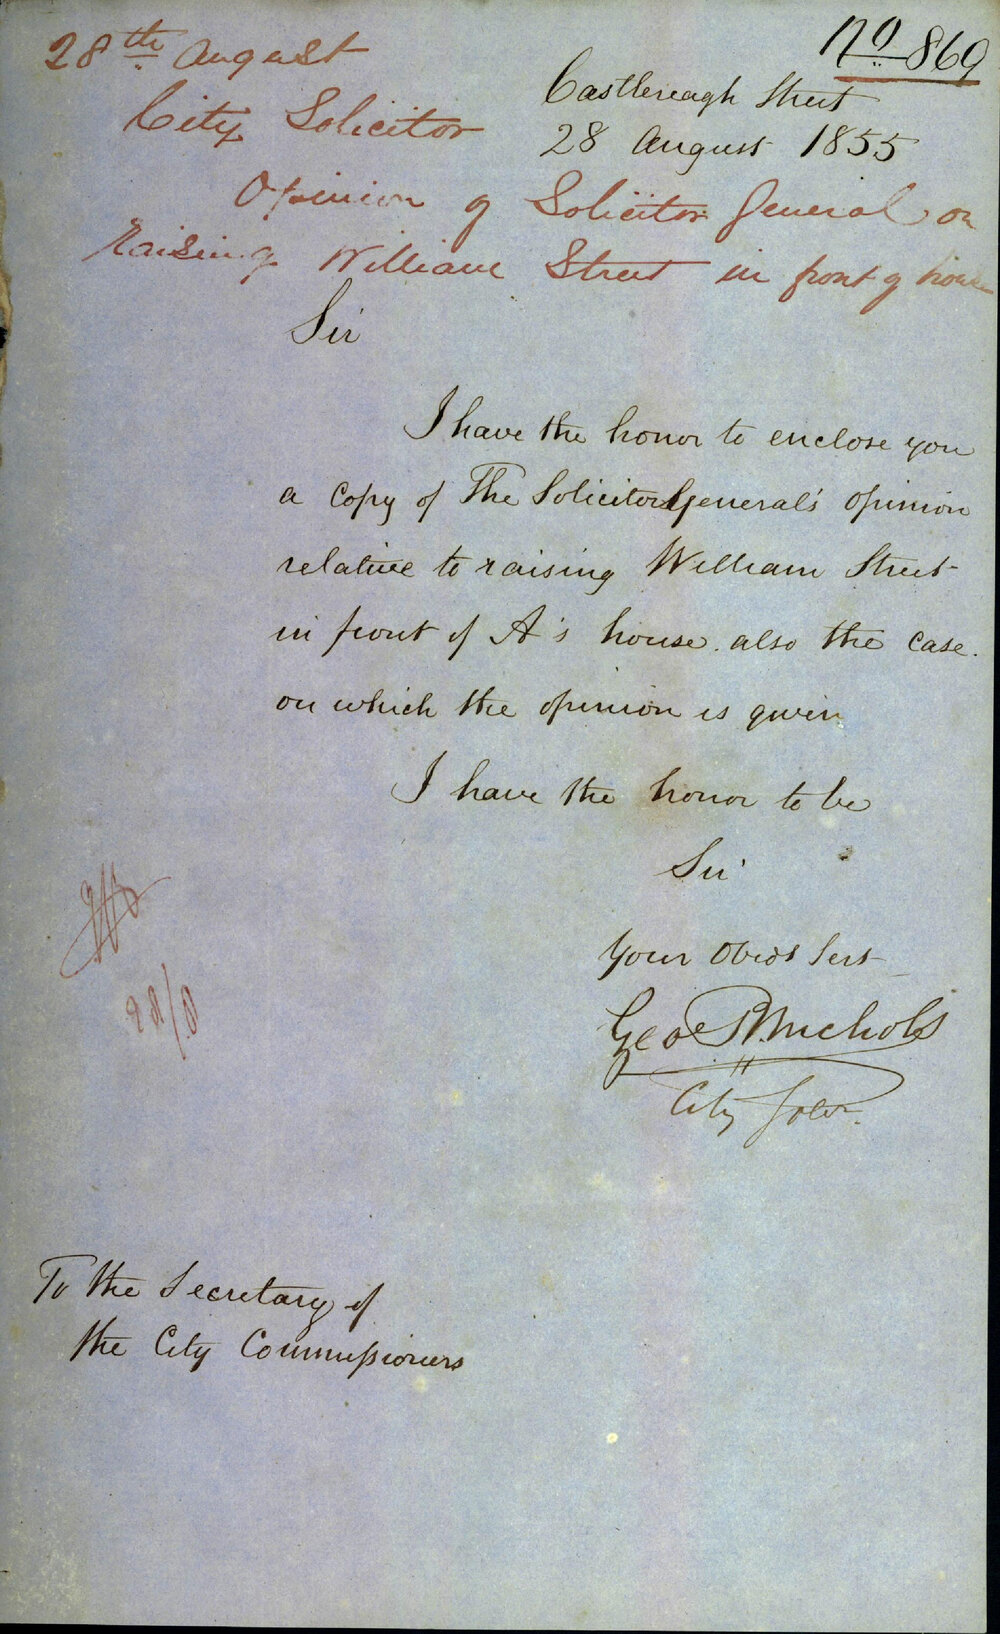 No 869
28th August
Castlereagh Street
City Solicitor
28 August 1855
Opinion of Solicitor General on
raising William Street in front of house
Sir
I have the honor to enclose you
a copy of The Solicitor General's opinion
relative to raising William Street
in front of A's house. also the case.
on which the opinion is given
I have the honor to be
Sir
Your Obedt Servt
Geo R. Nichols
City Solr.
28/8
To the Secretary of
the City Commissioners